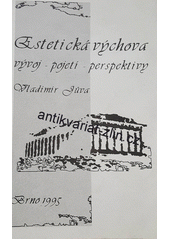 Estetická výchova
vývoj - pojetí - perspektivy
Vladimír Jůva
antikvariat-zlin.cz
Brno 1995